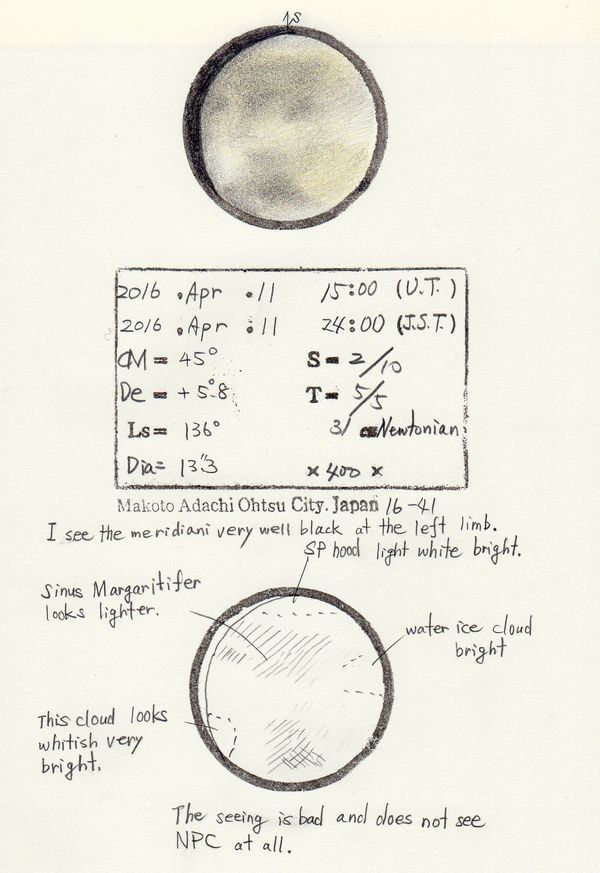 S
2016 . Apr . 11 15:00 (U.T.)
2016 . Apr . 11 24:00 (J.S.T.)
CM = 45° S = 2/10
De = + 5°.8 T = 5/5
Ls = 136° 31 cm Newtonian
Dia = 13".3 × 400 ×
Makoto Adachi Ohtsu City. Japan 16-41
I see the meridiani very well black at the left limb.
SP hood light white bright.
Sinus Margaritifer
looks lighter.
water ice cloud
bright
This cloud looks
whitish very
bright.
The seeing is bad and does not see
NPC at all.